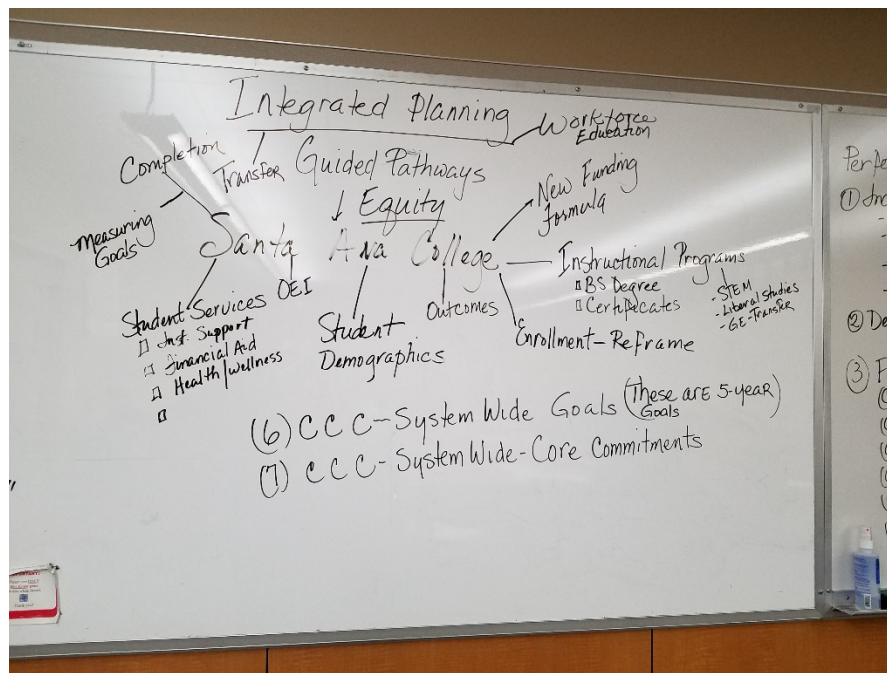 Integrated Planning
Workforce
Education
Completion
Transfer
Guided Pathways
↓ Equity
New Funding
Formula
Measuring
Goals
Santa Ana College
OEI
Instructional Programs
□ BS Degree
□ Certificates
- STEM
- Liberal Studies
- GE-Transfer
Student Services
□ Inst. Support
□ Financial Aid
□ Health/Wellness
□
Student
Demographics
Outcomes
Enrollment-Reframe
(6) CCC-System Wide Goals (These are 5-year
Goals)
(7) CCC-System Wide-Core Commitments
①
②
③